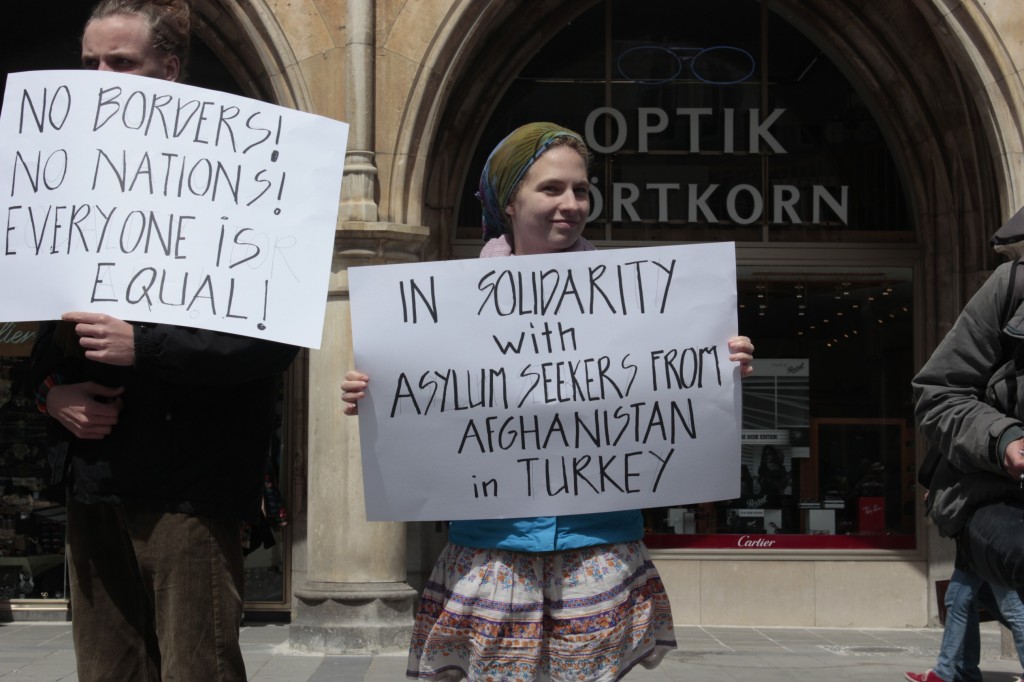 NO BORDERS!
NO NATIONS!
EVERYONE IS
EQUAL!
IN SOLIDARITY
with
ASYLUM SEEKERS FROM
AFGHANISTAN
in TURKEY
OPTIK
ÖRTKORN
Cartier